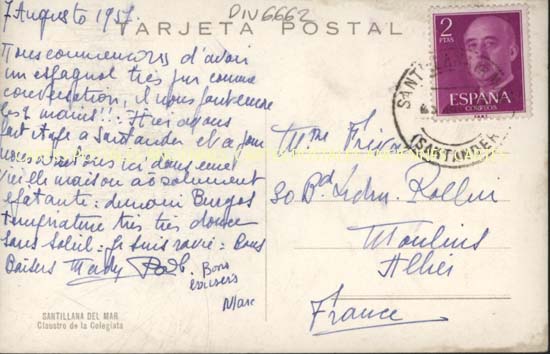 7 Augusto 1957
DIV6662
TARJETA POSTAL
Nous commençons d'avoir
un espagnol très pur comme
conversation, il nous faut encore
les 2 mains!! : Hier avons
fait étape à Santander et ce jour
nous ici dans une
vieille maison absolument
épatante : demain Burgos
température très très douce
Sans Soleil : je suis ravie : Bons
Baisers Mady
Bons
baisers
Marc
SANTILLANA DEL MAR
Claustro de la Colegiata
2
PTAS
ESPAÑA
CORREOS
SANTILLANA
(SANTANDER)
Mme
30 Bd Ledru-Rollin
Moulins
Allier
France